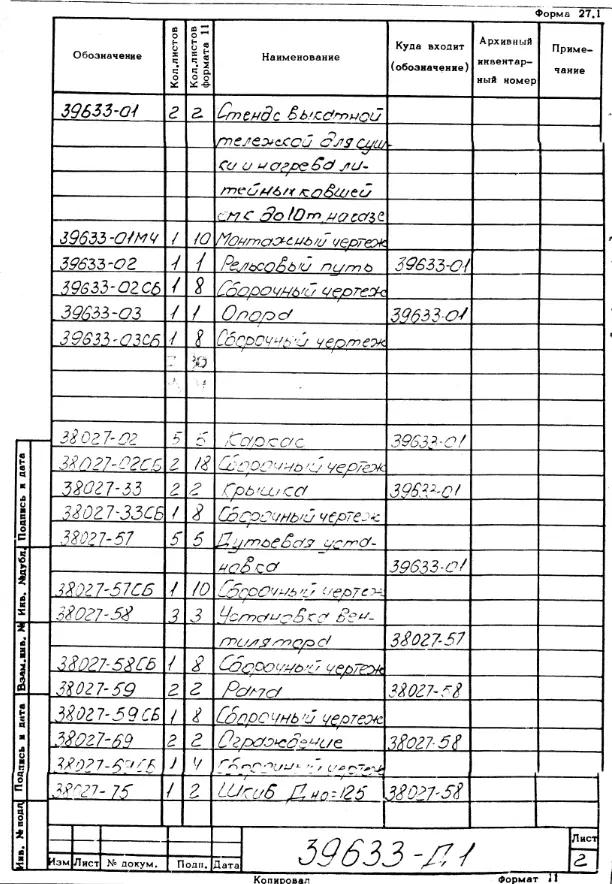 Форма 27.1
Обозначение Кол.листов Кол.листов формата 11 Наименование Куда входит (обозначение) Архивный инвентарный номер Примечание
39633-01 2 2 Стенд с выкатной
тележкой для суш
ки и нагрева ли-
тейных ковшей
емк до 10т, на газе
39633-01МЧ 1 10 Монтажный чертеж
39633-02 1 1 Рельсовый путь 39633-01
39633-02СБ 1 8 Сборочный чертеж
39633-03 1 1 Опора 39633-01
39633-03СБ 1 8 Сборочный чертеж
30
4
38027-02 5 5 Каркас 39633-01
38027-02СБ 2 18 Сборочный чертеж
38027-33 2 2 Крышка 39633-01
38027-33СБ 1 8 Сборочный чертеж
38027-57 5 5 Дутьевая уста-
новка 39633-01
38027-57СБ 1 10 Сборочный чертеж
38027-58 3 3 Установка вен-
тилятора 38027-57
38027-58СБ 1 8 Сборочный чертеж
38027-59 2 2 Рама 38027-58
38027-59СБ 1 8 Сборочный чертеж
38027-69 2 2 Ограждение 38027-58
38027-69СБ 1 4 Сборочный чертеж
38027-75 1 2 Шкив 38027-58
Инв. № подл Подпись и дата Взам.инв. № Инв. №дубл. Подпись и дата
Изм Лист № докум. Подп. Дата
39633-Д1
Лист
2
Копировал Формат 11